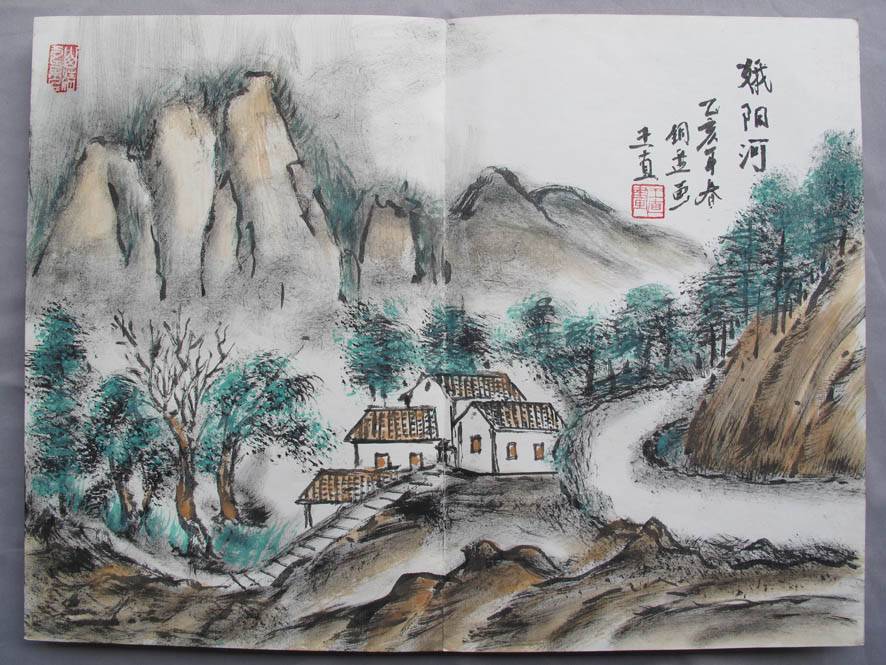 娥阳河
乙亥年春
铜 画
王直